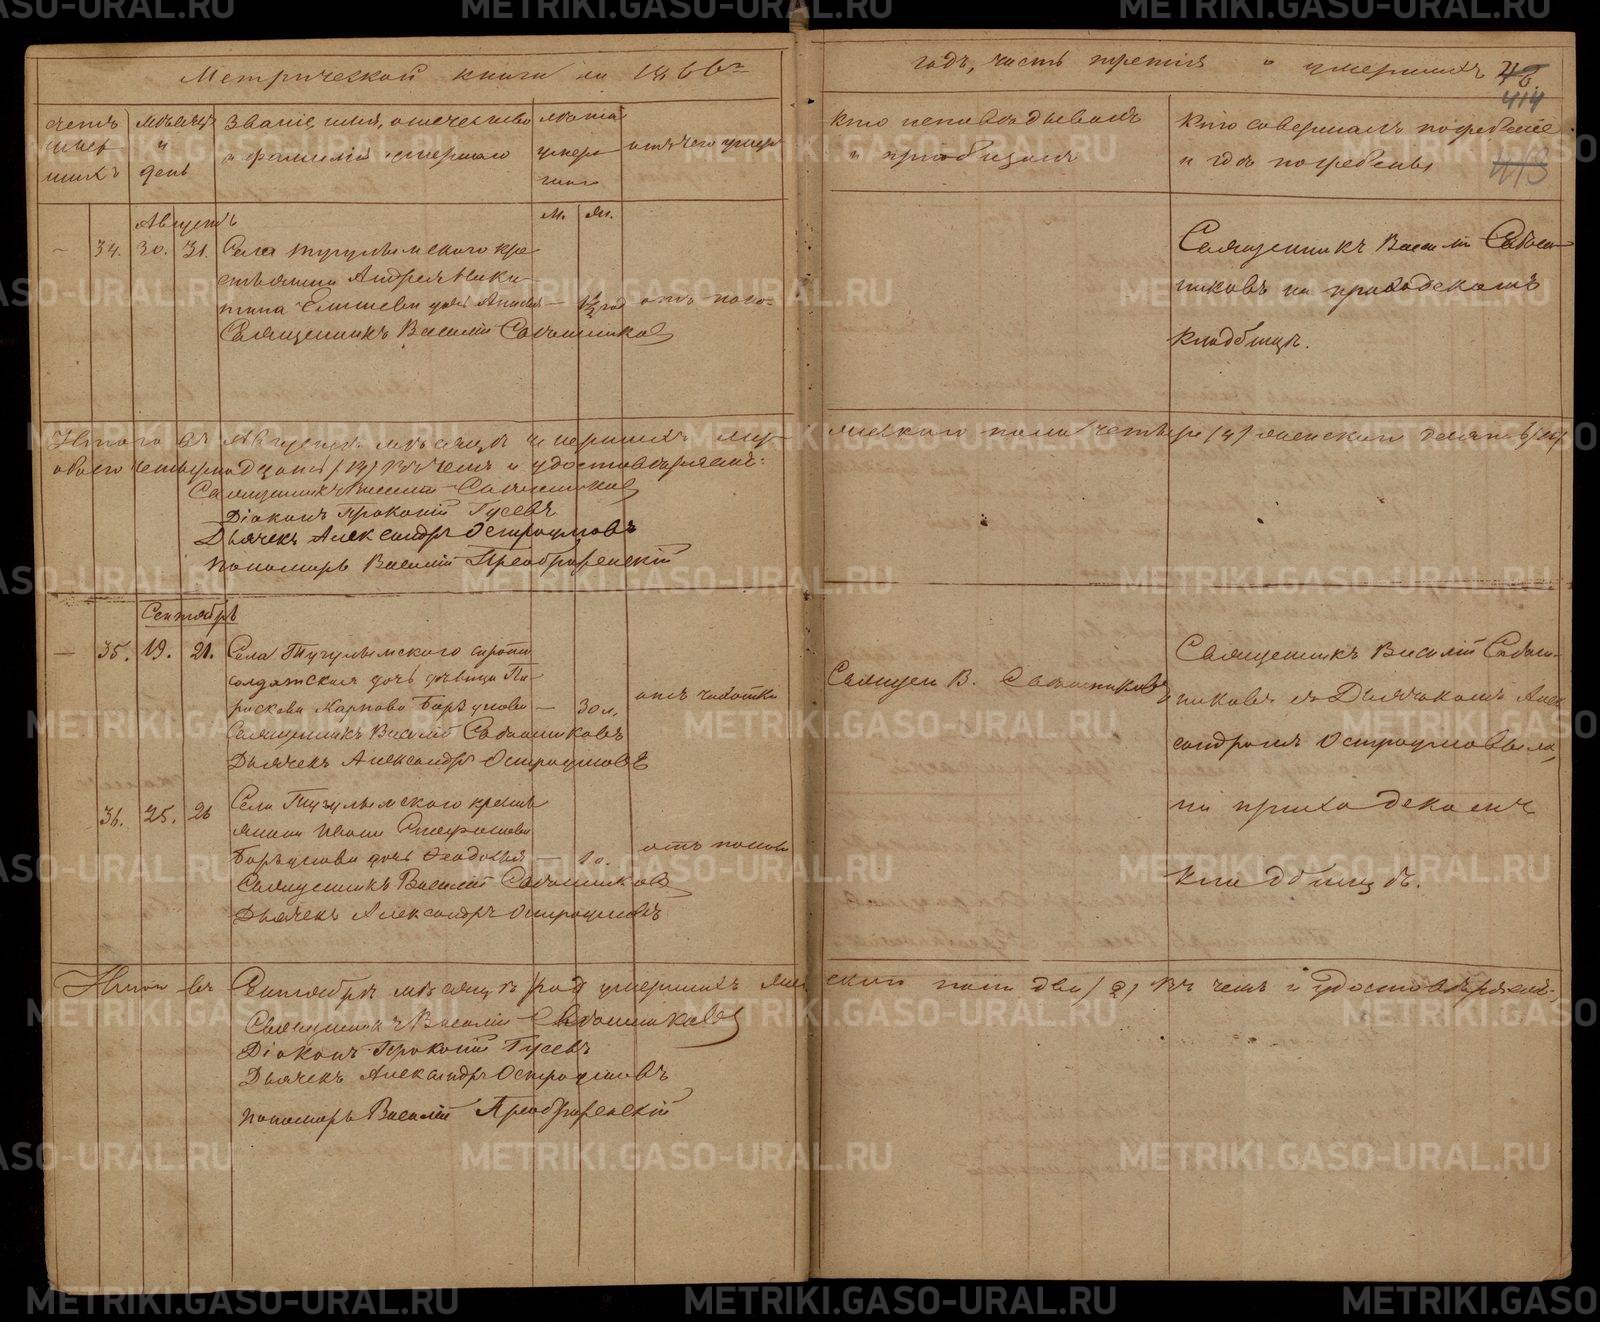 Метрической книги на 1866й
годъ, часть третія о умершихъ
414
413
Звание, имя, отечество
и фамилія умершаго
Лета
умер
шаго
отъ чего умеръ
кто исповѣдывалъ
и пріобщалъ
Кто совершалъ погребеніе
и гдѣ погребены
м. ж.
Августъ
34. 30. 31. Села Тугулымского кре
стьянина Андрея Ники
тина дочь 1½ год отъ поно
Священникъ Василій Сабанниковъ
Священникъ Василій Сабан
никовъ на приходскомъ
кладбищѣ.
Итого въ Августѣ мѣсяцѣ умершихъ муж
женскаго пола четыре (4) женскаго десять (10)
обоего четырнадцать (14) въ чемъ и удостовѣряемъ:
Священникъ Василій Сабанниковъ
Діаконъ Прокопій Гусевъ
Дьячекъ Александръ Остроумовъ
Пономарь Василій Преображенскій
Сентябрь
35. 19. 21. Села Тугулымского
солдатская дочь дѣвица Па
раскева Карпова 30 л. отъ чахотки
Священникъ Василій Сабанниковъ
Дьячекъ Александръ Остроумовъ
Священ В. Сабанниковъ
Священникъ Василій Сабан
никовъ съ Дьячкомъ Алек
сандромъ Остроумовымъ
на приходскомъ
кладбищѣ.
36. 25. 26 Села Тугулымского кресть
янина Ивана Стефанова
дочь отъ поноса
Священникъ Василій Сабанниковъ
Дьячекъ Александръ Остроумовъ
Итого въ Сентябрѣ мѣсяцѣ умершихъ жен
скаго пола два (2) въ чемъ и удостовѣряемъ:
Священникъ Василій Сабанниковъ
Діаконъ Прокопій Гусевъ
Дьячекъ Александръ Остроумовъ
Пономарь Василій Преображенскій
METRIKI.GASO-URAL.RU